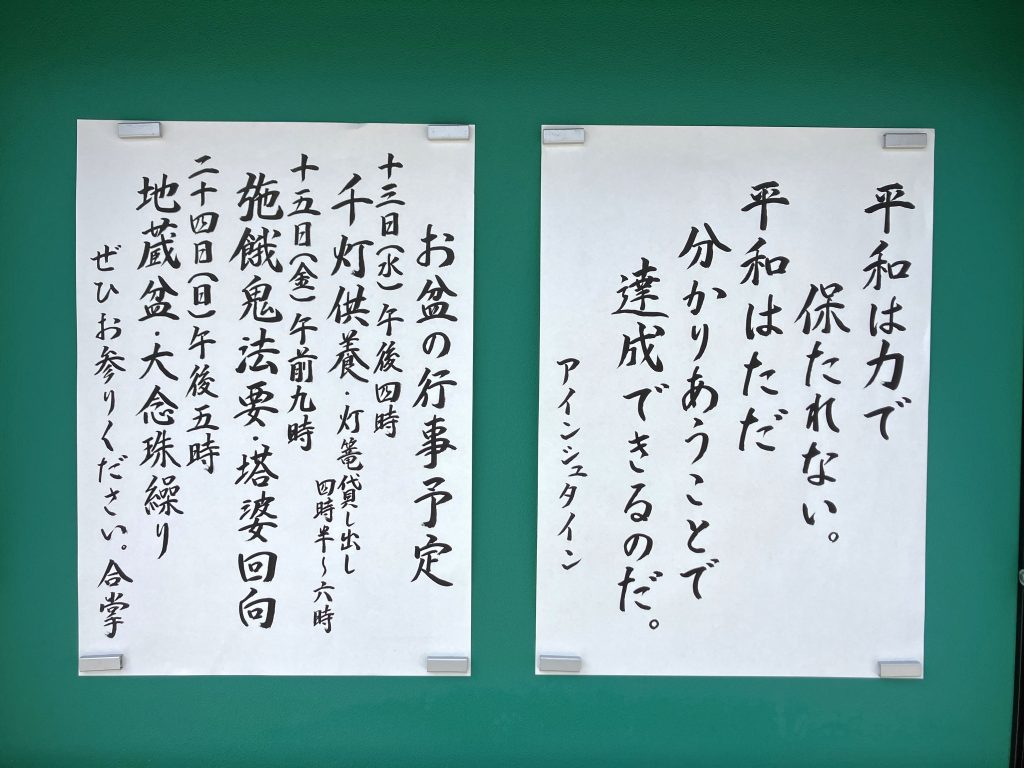 平和は力で
保たれない。
平和はただ
分かりあうことで
達成できるのだ。
アインシュタイン
お盆の行事予定
十三日(水)午後四時
千灯供養・灯篭貸し出し
四時半～六時
十五日(金)午前九時
施餓鬼法要・塔婆回向
二十四日(日)午後五時
地蔵盆・大念珠繰り
ぜひお参りください。合掌